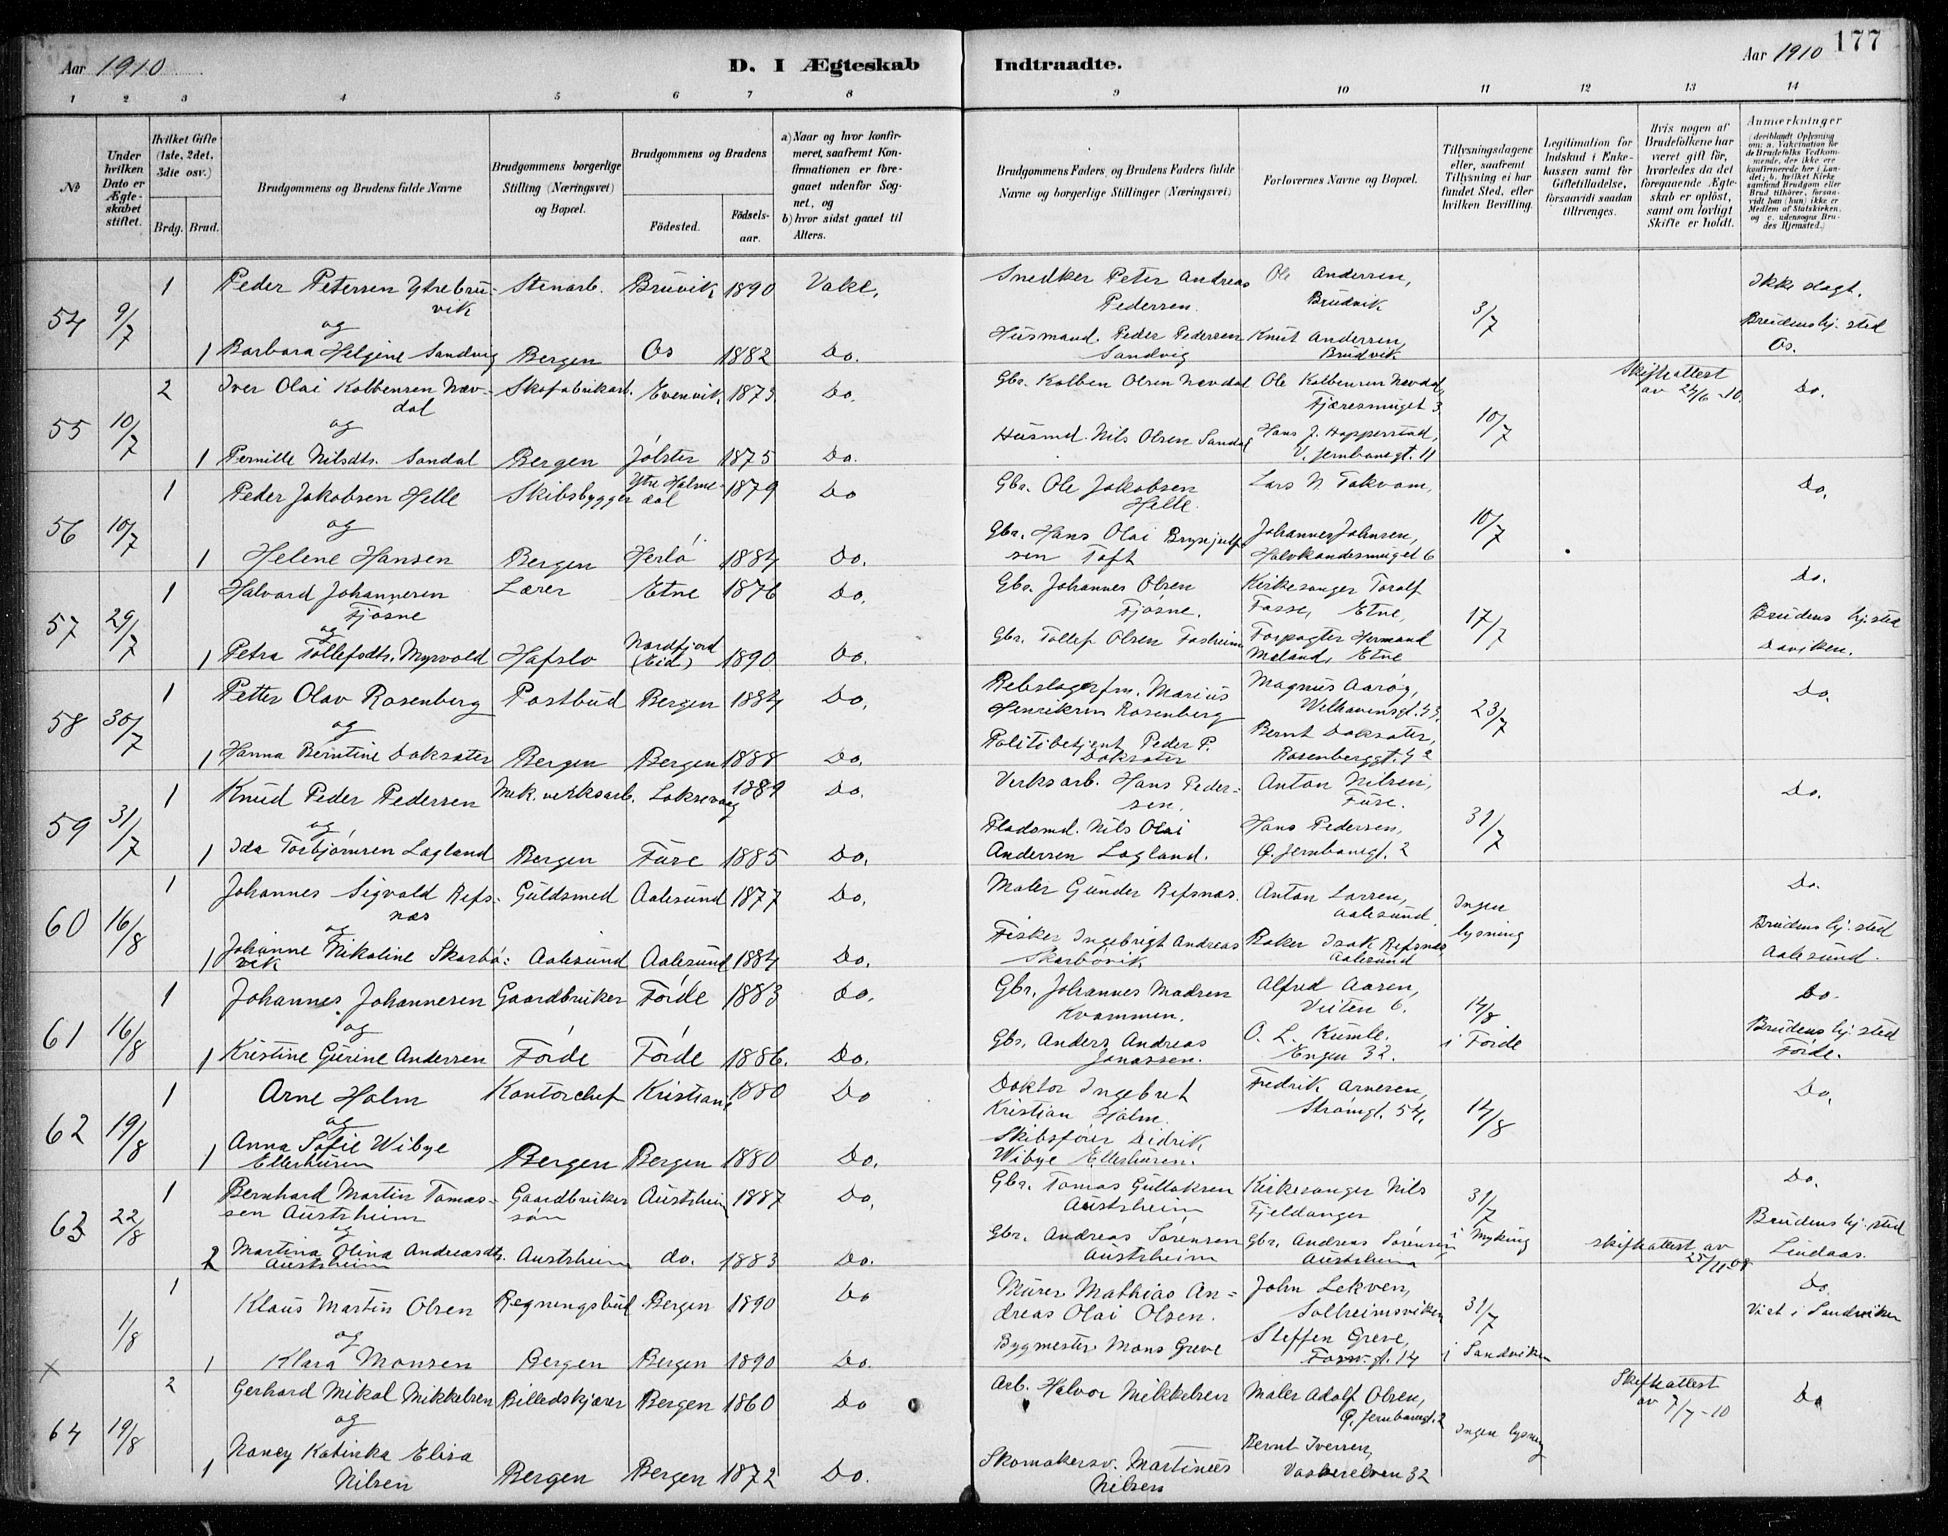 177
Aar 1910
D. I Ægteskab Indtraadte.
Aar 1910
1 2 3 4 5 6 7 8 9 10 11 12 13 14
№
Under hvilken Dato er Ægteskabet stiftet.
Hvilket Gifte (1ste, 2det, 3die osv.)
Brdg. Brud.
Brudgommens og Brudens fulde Navne
Brudgommens borgerlige Stilling (Næringsvei) og Bopæl.
Brudgommens og Brudens
Födested.
Födsels-aar.
a) Naar og hvor konfirmeret, saafremt Konfirmationen er foregaaet udenfor Sognet, og
b) hvor sidst gaaet til Alters.
Brudgommens Faders og Brudens Faders fulde Navne og borgerlige Stillinger (Næringsvei)
Forlovernes Navne og Bopæl.
Tillysningsdagene eller, saafremt Tillysning ei har fundet Sted, efter hvilken Bevilling.
Legitimation for Indskud i Enkekassen samt for Giftetilladelse, forsaavidt saadan tiltrænges.
Hvis nogen af Brudefolkene har været gift för, hvorledes da det foregaaende Ægteskab er oplöst, samt om lovligt Skifte er holdt.
Anmærkninger
(deriblandt Oplysning om: a. Vakcination for de Brudefolks Vedkommende, der ikke ere konfirmerede her i Landet; b. hvilket Kirkesamfund Brudgom eller Brud tilhörer, forsaavidt han (hun) ikke er Medlem af Statskirken, og c. udensogns Brudes Hjemsted.)
54 9/7 1 Peder Petersen Ytrebruvik Stenarb. Bruvik 1890 Vakc. Snedker Peter Andreas Pedersen Ole Andersen, Brudvik 3/7 Ikke slagt.
og
1 Barbara Helgine Sandvig Bergen Os 1882 Do. Husmand Peder Pedersen Sandvig Knut Andersen, Brudvik Brudens hj. sted Os.
55 10/7 2 Iver Olai Kolbensen Nævdal Skofabrikarb. Evenvik 1873 Do. Gbr. Kolben Olsen Nævdal Ole Kolbensen Nævdal, Fjæresmuget 3 10/7 Skifteattest av 24/6-10. Do.
og
1 Pernille Nilsdtr. Sandal Bergen Jølster 1875 Do. Husmd. Nils Olsen Sandal Hans J. Hopperstad, V. Jernbanegt. 11
56 10/7 1 Peder Jakobsen Helle Skibsbygger Ytre Holmedal 1879 Do Gbr. Ole Jakobsen Helle. Lars N Takvam, 10/7 Do.
og
1 Helene Hansen Bergen Herlö 1884 Do. Gbr. Hans Olai Brynjulfsen Toft Johannes Johnsen, Halvkandesmuget 6
57 29/7 1 Halvard Johannesen Fjøsne Lærer Etne 1876 Do. Gbr. Johannes Olsen Fjøsne. Kirkesanger Toralf Fosse, Etne, 17/7 Do.
og
1 Petra Tollefsdtr. Myrvold Hafslo Nordfjord (Eid) 1890 Do. Gbr. Tollef Olsen Fosheim Forpagter Hermand Meland, Etne Brudens hj. sted Daviken.
58 30/7 1 Petter Olav Rosenberg Postbud Bergen 1884 Do. Rebslagerfm. Marius Henriksen Rosenberg Magnus Aarøy, Welhavensgt. 23/7 Do.
og
1 Hanna Berntine Doksater Bergen Bergen 1888 Do. Politibetjent Peder P. Doksater Bernt Doksater, Rosenberggt.
59 31/7 1 Knud Peder Pedersen Mek. verksarb. Laksevaag 1889 Do. Verksarb. Hans Pedersen. Anton Nilsen, Fuse. 31/7 Do.
og
1 Ida Torbjørnsen Lagland Bergen Fuse 1885 Do. Pladsmd. Nils Olai Andersen Lagland. Hans Pedersen, Ø. Jernbanegt. 2
60 16/8 1 Johannes Sigvald Refsnæs Guldsmed Aalesund 1877 Do. Maler Gunder Refsnæs. Anton Larsen, Aalesund Ingen lysning Do.
og
1 Johanne Nikoline Skarbövik Aalesund Aalesund 1884 Do. Fisker Ingebrigt Andreas Skarbövik Baker Isak Refsnæs, Aalesund Brudens hj. sted Aalesund.
61 16/8 1 Johannes Johannesen Gaardbruker Förde 1883 Do. Gbr. Johannes Madsen Kvammen. Alfred Aasen, Veiten 6. 14/8 i Förde Do.
og
1 Kristine Gurine Andersen Förde Förde 1886. Do. Gbr. Anders Andreas Jonassen. O. L. Kumle. Engen 32. Brudens hj. sted Förde.
62 19/8 1 Arne Holm Kontorchef Kristiania 1880 Do Doktor Ingebret Kristian Holm. Fredrik Arnesen, Strömgt. 54. 14/8 Do.
og
1 Anna Sofie Wibye Ellerhusen Bergen Bergen 1880 Do. Skibsförer Didrik Wibye Ellerhusen.
63 22/8 1 Bernhard Martin Tomassen Austrheim Gaardbrukersön Austrheim 1887 Do. Gbr. Tomas Gullaksen Austrheim Kirkesanger Nils Fjeldanger 31/7 i Myking Do.
og
2 Martina Olina Andreasdtr. Austrheim Austrheim do. 1883 Do. Gbr. Andreas Sörensen Austrheim Gbr. Andreas Sörensen Austrheim skifteattest av 25/11-08 Brudens hj. sted Lindaas.
1/8 1 Klaus Martin Olsen Regningsbud Bergen 1890 Do Murer Mathias Andreas Olai Olsen. John Lekven, Solheimsviken 31/7 i Sandviken Do. Viet i Sandviken
og
× 1 Klara Monsen Bergen Bergen 1890 Do. Bygmester Mons Greve Steffen Greve, Fossw.gt. 14
64 19/8 2 Gerhard Mikal Mikkelsen Billedskjærer Bergen 1860 Do Arb. Halvor Mikkelsen Maler Adolf Olsen, Ø. Jernbanegt. 2 Ingen lysning Skifteattest av 7/7-10 Do
og
1 Nancy Katinka Elisa Nilsen Bergen Bergen 1872 Do. Skomakersv. Martinius Nilsen Bernt Iversen, Vaskerelven 32